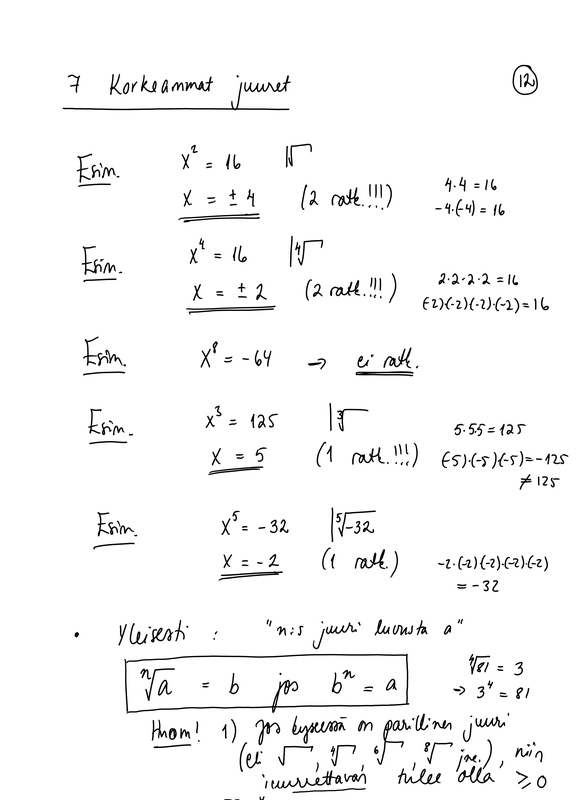 7 Korkeammat juuret
12
Esim. x² = 16 |√
x = ± 4 (2 ratk.!!!) 4·4 = 16
-4·(-4) = 16
Esim. x⁴ = 16 |⁴√
x = ± 2 (2 ratk.!!!) 2·2·2·2 = 16
(-2)·(-2)·(-2)·(-2) = 16
Esim. x⁸ = -64 → ei ratk.
Esim. x³ = 125 |³√
x = 5 (1 ratk.!!!) 5·5·5 = 125
(-5)·(-5)·(-5) = -125
≠ 125
Esim. x⁵ = -32 |⁵√-32
x = -2 (1 ratk.) -2·(-2)·(-2)·(-2)·(-2)
= -32
• Yleisesti : "n:s juuri luvusta a"
ⁿ√a = b jos bⁿ = a
⁴√81 = 3
→ 3⁴ = 81
Huom! 1) Jos kyseessä on parillinen juuri
(eli √, ⁴√, ⁶√, ⁸√ jne.), niin
juurrettavan tulee olla ≥ 0